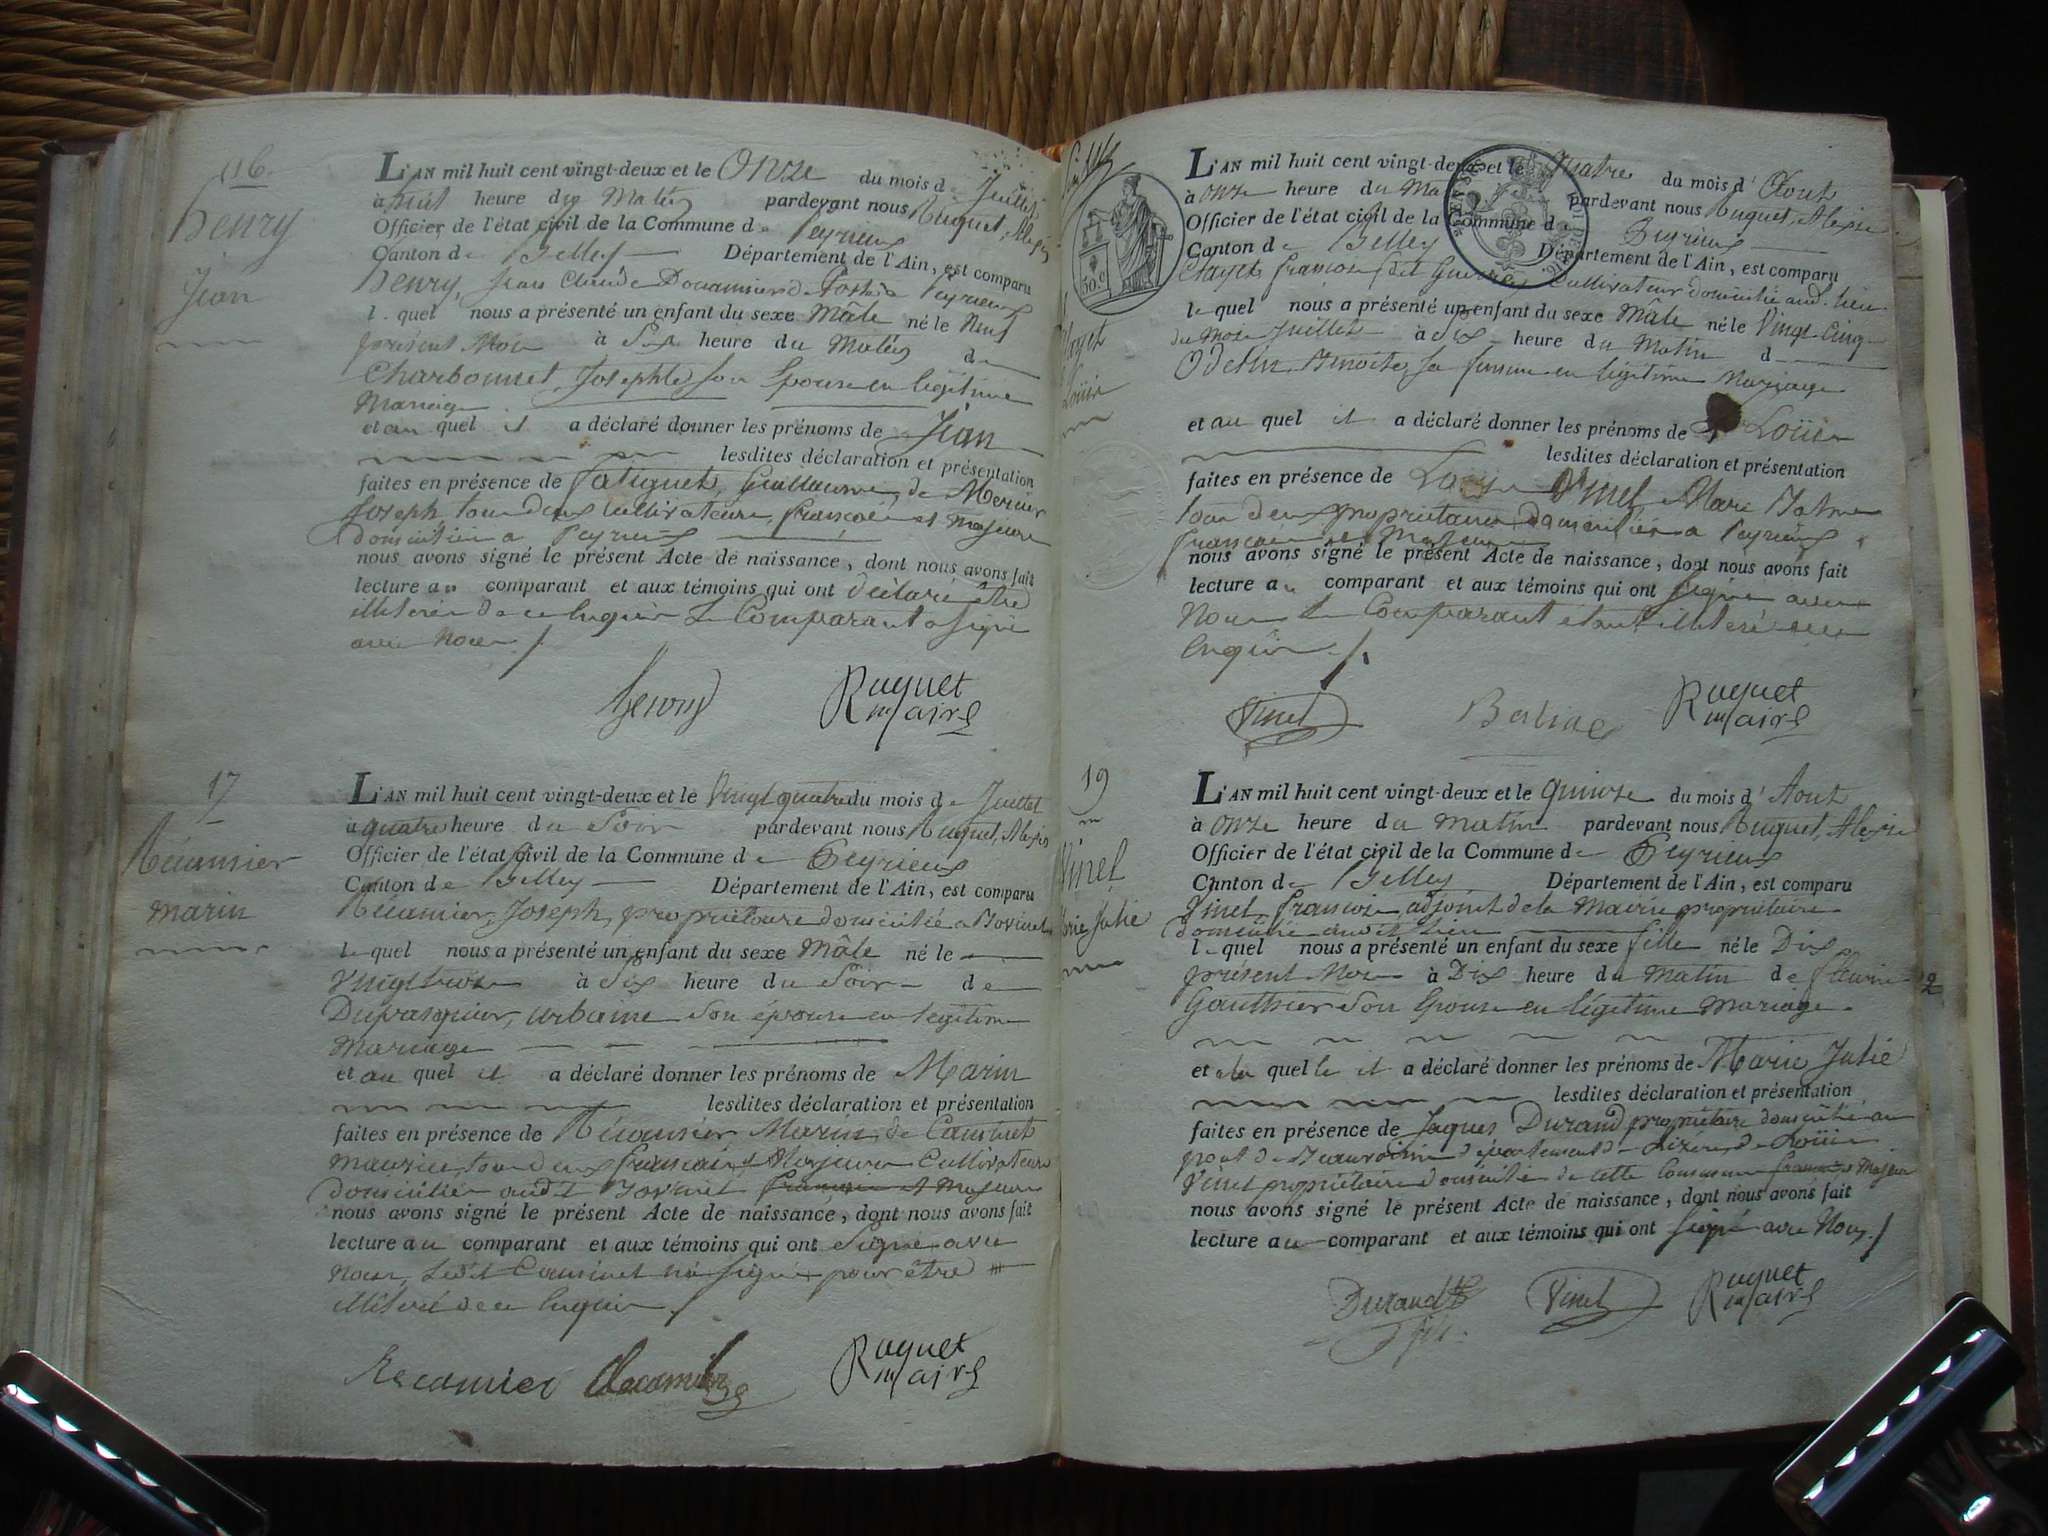 16.
henry
Jean
L'AN mil huit cent vingt-deux et le Onze du mois de Juillet
à huit heure du Matin pardevant nous Ruguet, Alexis
Officier de l'état civil de la Commune de Peyrieux
Canton de Belley Département de l'Ain, est comparu
henry, Jean Claude Douannier de Poste à Peyrieux
le quel nous a présenté un enfant du sexe Mâle né le Neuf
présent Mois à Six heure du Matin de
Charbonnet, Josephte son Epouse en légitime
Mariage
et au quel il a déclaré donner les prénoms de Jean
lesdites déclaration et présentation
faites en présence de Guillaume, de Mercier
Joseph tous deux Cultivateurs, français et majeurs
domiciliés à Peyrieux
nous avons signé le présent Acte de naissance, dont nous avons fait
lecture au comparant et aux témoins qui ont déclaré être
illiterés de ce enquis le Comparant a signé
avec Nous ./.
henry Ruguet
maire
17
Récamier
marin
L'AN mil huit cent vingt-deux et le Vingt quatre du mois de Juillet
à quatre heure du Soir pardevant nous Ruguet, Alexis
Officier de l'état civil de la Commune de Peyrieux
Canton de Belley Département de l'Ain, est comparu
Récamier, Joseph, propriétaire domicilié a
le quel nous a présenté un enfant du sexe Mâle né le
Vingt trois à Six heure du Soir de
Dupasquier, urbaine son épouse en légitime
Mariage
et au quel il a déclaré donner les prénoms de Marin
lesdites déclaration et présentation
faites en présence de Récamier Marin de Caminet
maurice, tous deux français et Majeurs Cultivateurs
domiciliés audit français et Majeurs
nous avons signé le présent Acte de naissance, dont nous avons fait
lecture au comparant et aux témoins qui ont Signé avec
Nous, Ledit Caminet n'a signé pour être
illiteré de ce Enquis ./.
Recamier Récamier Ruguet
maire
50.c
Louis
L'AN mil huit cent vingt-deux et le Quatre du mois d'Aout
à onze heure du Matin pardevant nous Ruguet, Alexis
Officier de l'état civil de la Commune de Peyrieux
Canton de Belley Département de l'Ain, est comparu
françois Cultivateur domicilié aud. lieu
le quel nous a présenté un enfant du sexe Mâle né le Vingt-Cinq
du Mois Juillet à Six heure du Matin d
Odetin Benoite, sa femme en légitime Mariage
et au quel il a déclaré donner les prénoms de Louis
lesdites déclaration et présentation
faites en présence de Louis Vinet, Marc
tous deux propriétaires domiciliés a Peyrieux
français et Majeurs
nous avons signé le présent Acte de naissance, dont nous avons fait
lecture au comparant et aux témoins qui ont Signé avec
Nous le Comparant étant illiteré
Enquis ./.
Vinet Ruguet
maire
19
Vinet
Marie Julie
L'AN mil huit cent vingt-deux et le quinze du mois d'Aout
à Onze heure du matin pardevant nous Ruguet, Alexis
Officier de l'état civil de la Commune de Peyrieux
Canton de Belley Département de l'Ain, est comparu
Vinet, françois, adjoint de la Mairie propriétaire
domicilié audit lieu
le quel nous a présenté un enfant du sexe fille né le Dix
présent Mois à Dix heure du Matin de fleurie
Gauthier son Epouse en légitime Mariage
et a la quelle il a déclaré donner les prénoms de Marie Julie
lesdites déclaration et présentation
faites en présence de Jaques Durand propriétaire domicilié au
pont de Beauvoisin département de Lizère, de Louis
Vinet propriétaire domicilié de cette Commune français Majeurs
nous avons signé le présent Acte de naissance, dont nous avons fait
lecture au comparant et aux témoins qui ont Signé avec Nous ./.
Durand Vinet Ruguet
fils maire